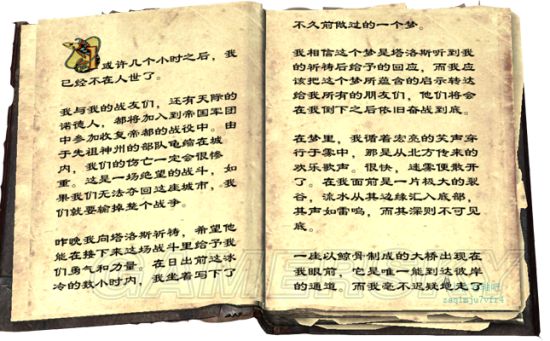 或许几个小时之后，我
已经不在人世了。
我与我的战友们，还有天际的
诺德人，都将加入到帝国军团
中参加收复帝都的战役中。由
于先祖神州的部队龟缩在城
内，我们的伤亡一定会很惨
重。这是一场绝望的战斗，如
果我们无法夺回这座城市，我
们就要输掉整个战争。
昨晚我向塔洛斯祈祷，希望他
能在接下来这场战斗里给予我
们勇气和力量。在日出前这冰
冷的数小时内，我坐着写下了
不久前做过的一个梦。
我相信这个梦是塔洛斯听到我
的祈祷后给予的回应，而我应
该把这个梦所蕴含的启示转达
给我所有的朋友们，他们将会
在我倒下之后依旧奋战到底。
在梦里，我循着宏亮的笑声穿
行于雾中，那是从北方传来的
欢乐歌声。很快，迷雾便散开
了。在我面前是一片极大的裂
谷，流水从其边缘汇入底部，
其声如雷鸣，而其深则不可见
底。
一座以鲸骨制成的大桥出现在
我眼前，它是唯一能到达彼岸
的通道。而我毫不迟疑地走了
GAMERSKY
zaq1mju7vfr4